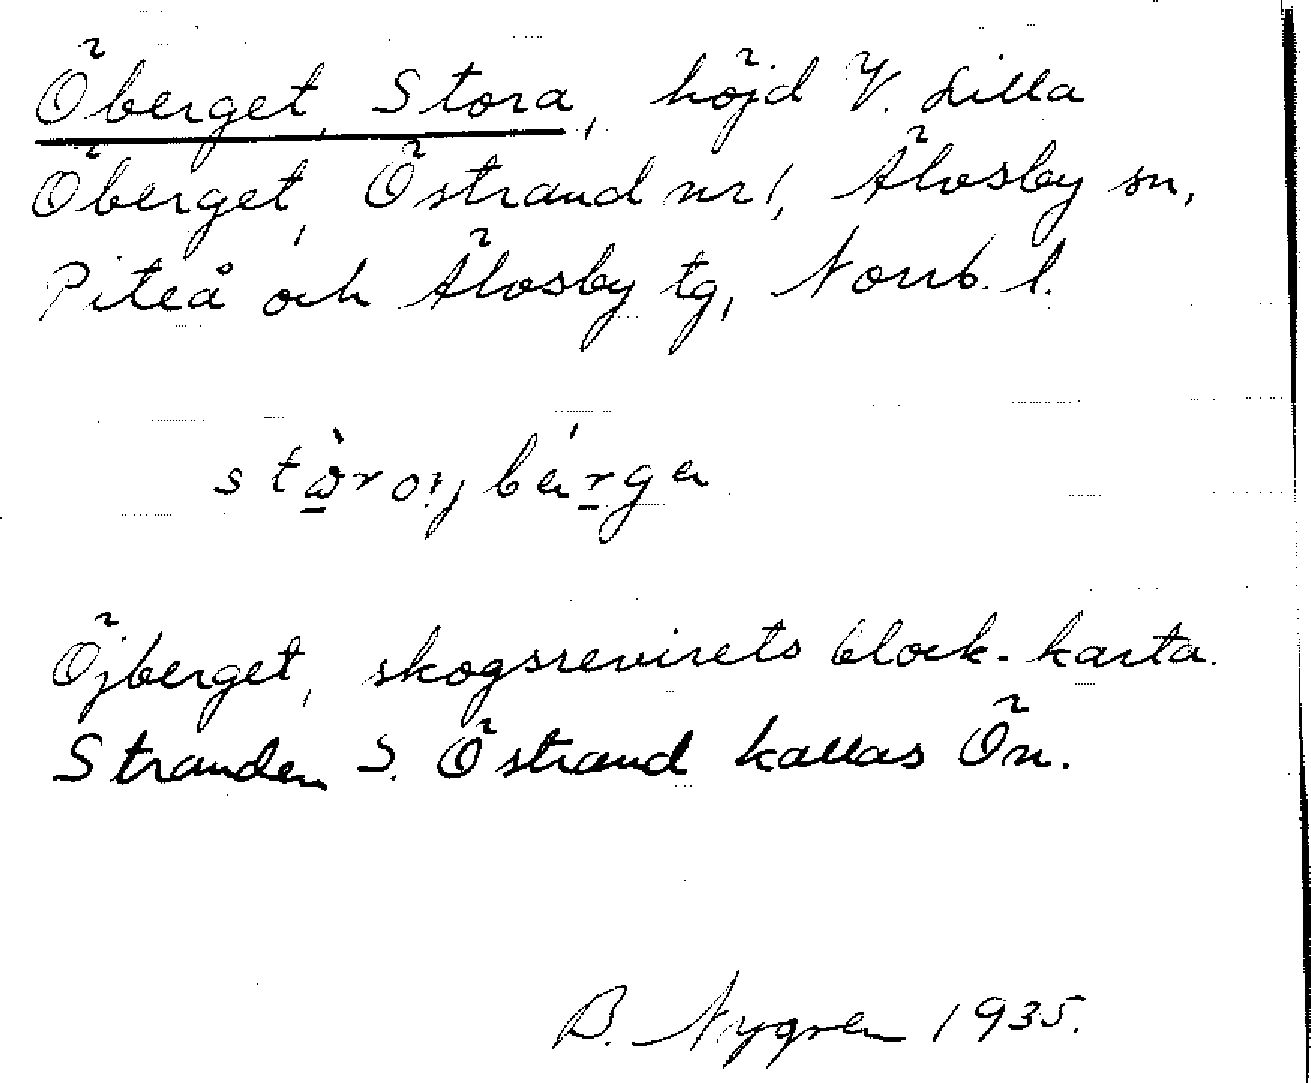 Öberget, Stora, höjd V. Lilla
Öberget, Östrand nr 1, Älvsby sn,
Piteå och Älvsby tg, Norrb. l.
Öjberget, skogsrevirets block-karta.
Stranden S. Östrand kallas Ön.
B. Nygren 1935.